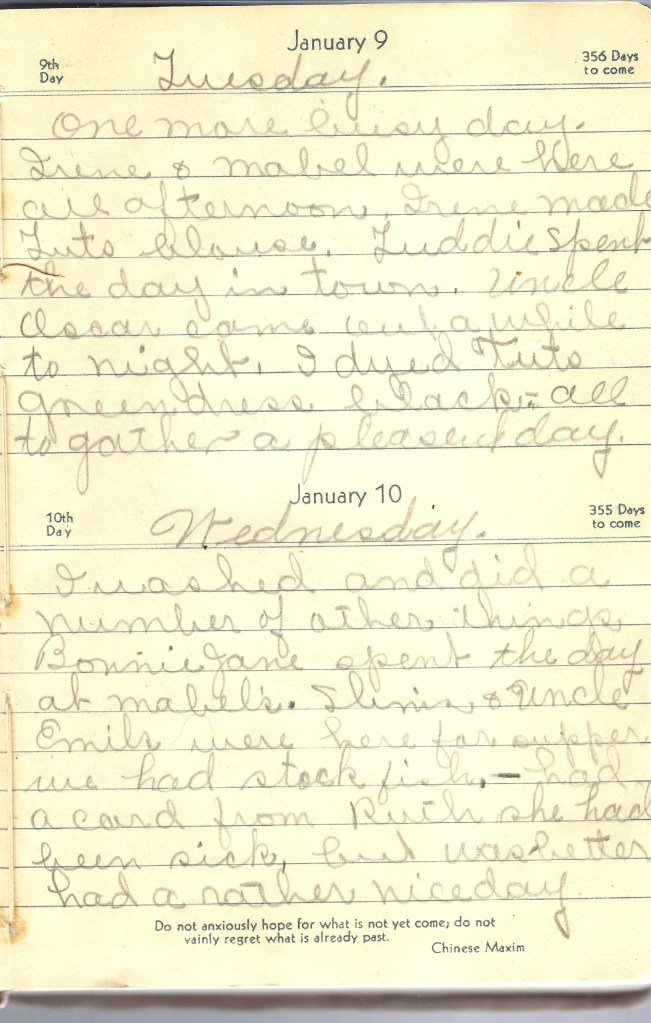 January 9
9th
Day
356 Days
to come
Tuesday.
One more busy day.
Irene & mabel were here
all afternoon. Irene made
Tuts blouse. Luddie spent
the day in town. Uncle
Oscar came out a while
to night. I dyed Tuts
green dress black - all
to gather a pleasent day.
January 10
10th
Day
355 Days
to come
Wednesday.
I washed and did a
number of other things
Bonnie Jane spent the day
at mabel's. & Uncle
Emils were here for supper
we had stock fish, - had
a card from Ruth she had
been sick, but was better
had a rather nice day
Do not anxiously hope for what is not yet come; do not
vainly regret what is already past.
Chinese Maxim